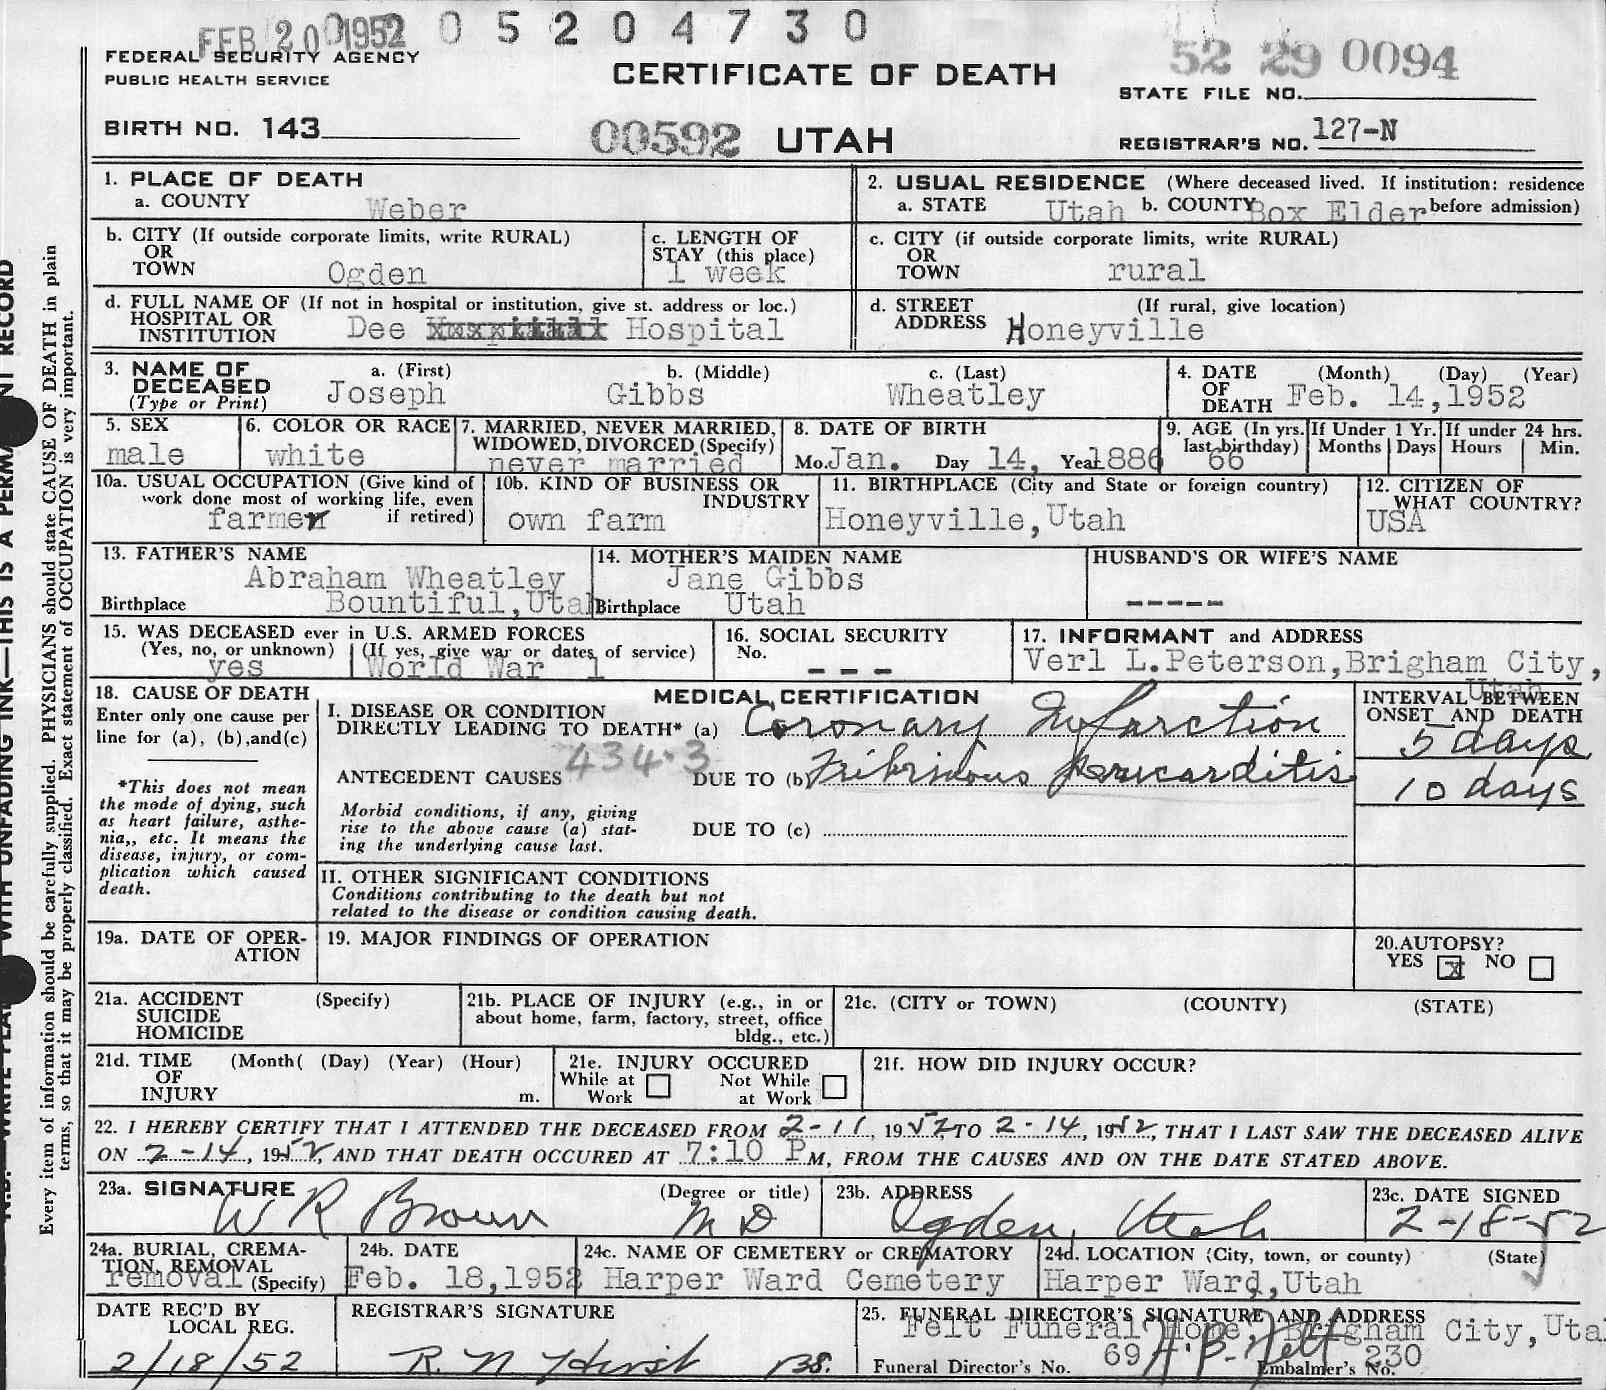 FEB 20 1952 0 5 2 0 4 7 3 0
FEDERAL SECURITY AGENCY
PUBLIC HEALTH SERVICE
CERTIFICATE OF DEATH
52 29 0094
STATE FILE NO.
BIRTH NO. 143
00592 UTAH
REGISTRAR'S NO. 127-N
Every item of information should be carefully supplied. PHYSICIANS should state CAUSE OF DEATH in plain
terms, so that it may be properly classified. Exact statement of OCCUPATION is very important.
WITH UNFADING INK—THIS IS A
RECORD
1. PLACE OF DEATH
a. COUNTY Weber
2. USUAL RESIDENCE (Where deceased lived. If institution: residence
a. STATE Utah b. COUNTY Box Elder before admission)
b. CITY (If outside corporate limits, write RURAL)
OR
TOWN Ogden
c. LENGTH OF
STAY (this place)
1 week
c. CITY (if outside corporate limits, write RURAL)
OR
TOWN rural
d. FULL NAME OF (If not in hospital or institution, give st. address or loc.)
HOSPITAL OR
INSTITUTION Dee Hospital
d. STREET (If rural, give location)
ADDRESS Honeyville
3. NAME OF
DECEASED
(Type or Print)
a. (First) b. (Middle) c. (Last)
Joseph Gibbs Wheatley
4. DATE (Month) (Day) (Year)
OF
DEATH Feb. 14,1952
5. SEX
male
6. COLOR OR RACE
white
7. MARRIED, NEVER MARRIED,
WIDOWED, DIVORCED (Specify)
never married
8. DATE OF BIRTH
Mo. Jan. Day 14, Year 1886
9. AGE (In yrs.
last birthday)
66
If Under 1 Yr.
Months Days
If under 24 hrs.
Hours Min.
10a. USUAL OCCUPATION (Give kind of
work done most of working life, even
if retired)
farmer
10b. KIND OF BUSINESS OR
INDUSTRY
own farm
11. BIRTHPLACE (City and State or foreign country)
Honeyville,Utah
12. CITIZEN OF
WHAT COUNTRY?
USA
13. FATHER'S NAME
Abraham Wheatley
Birthplace Bountiful,Utah
14. MOTHER'S MAIDEN NAME
Jane Gibbs
Birthplace Utah
HUSBAND'S OR WIFE'S NAME
-----
15. WAS DECEASED ever in U.S. ARMED FORCES
(Yes, no, or unknown) (If yes, give war or dates of service)
yes World War 1
16. SOCIAL SECURITY
No.
- - -
17. INFORMANT and ADDRESS
Verl L.Peterson,Brigham City,
Utah
18. CAUSE OF DEATH
Enter only one cause per
line for (a), (b),and(c)
*This does not mean
the mode of dying, such
as heart failure, asthe-
nia,, etc. It means the
disease, injury, or com-
plication which caused
death.
MEDICAL CERTIFICATION
I. DISEASE OR CONDITION
DIRECTLY LEADING TO DEATH* (a) Coronary Infarction
434.3
ANTECEDENT CAUSES DUE TO (b) Fibrinous pericarditis
Morbid conditions, if any, giving
rise to the above cause (a) stat-
ing the underlying cause last.
DUE TO (c)
INTERVAL BETWEEN
ONSET AND DEATH
5 days
10 days
II. OTHER SIGNIFICANT CONDITIONS
Conditions contributing to the death but not
related to the disease or condition causing death.
19a. DATE OF OPER-
ATION
19. MAJOR FINDINGS OF OPERATION
20. AUTOPSY?
YES x NO
21a. ACCIDENT (Specify)
SUICIDE
HOMICIDE
21b. PLACE OF INJURY (e.g., in or
about home, farm, factory, street, office
bldg., etc.)
21c. (CITY or TOWN) (COUNTY) (STATE)
21d. TIME (Month( (Day) (Year) (Hour)
OF
INJURY m.
21e. INJURY OCCURED
While at Work Not While at Work
21f. HOW DID INJURY OCCUR?
22. I HEREBY CERTIFY THAT I ATTENDED THE DECEASED FROM 2-11, 1952, TO 2-14, 1952, THAT I LAST SAW THE DECEASED ALIVE
ON 2-14, 1952, AND THAT DEATH OCCURED AT 7:10 P M, FROM THE CAUSES AND ON THE DATE STATED ABOVE.
23a. SIGNATURE (Degree or title)
W R Brown M D
23b. ADDRESS
Ogden, Utah
23c. DATE SIGNED
2-18-52
24a. BURIAL, CREMA-
TION, REMOVAL
removal (Specify)
24b. DATE
Feb. 18,1952
24c. NAME OF CEMETERY or CREMATORY
Harper Ward Cemetery
24d. LOCATION (City, town, or county) (State)
Harper Ward,Utah
DATE REC'D BY
LOCAL REG.
2/18/52
REGISTRAR'S SIGNATURE
R. N. Hirst
25. FUNERAL DIRECTOR'S SIGNATURE AND ADDRESS
Felt Funeral Home, Brigham City,Uta
H. B. Felt
Funeral Director's No. 69 Embalmer's No. 230